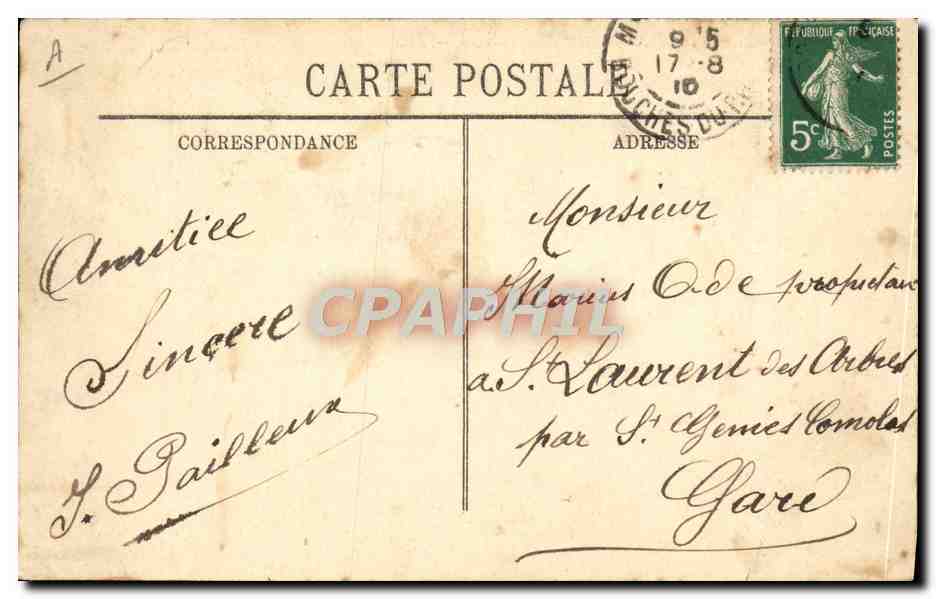 A
CARTE POSTALE
9 15
17 - 8
10
BOUCHES DU
REPUBLIQUE FRANÇAISE
5c
POSTES
CORRESPONDANCE
Amitiee
Sincere
J. Pailleux
ADRESSE
Monsieur
Marius Ode propietaire
a St Laurent des Arbres
par St Genies Comolas
Gard
CPAPHIL